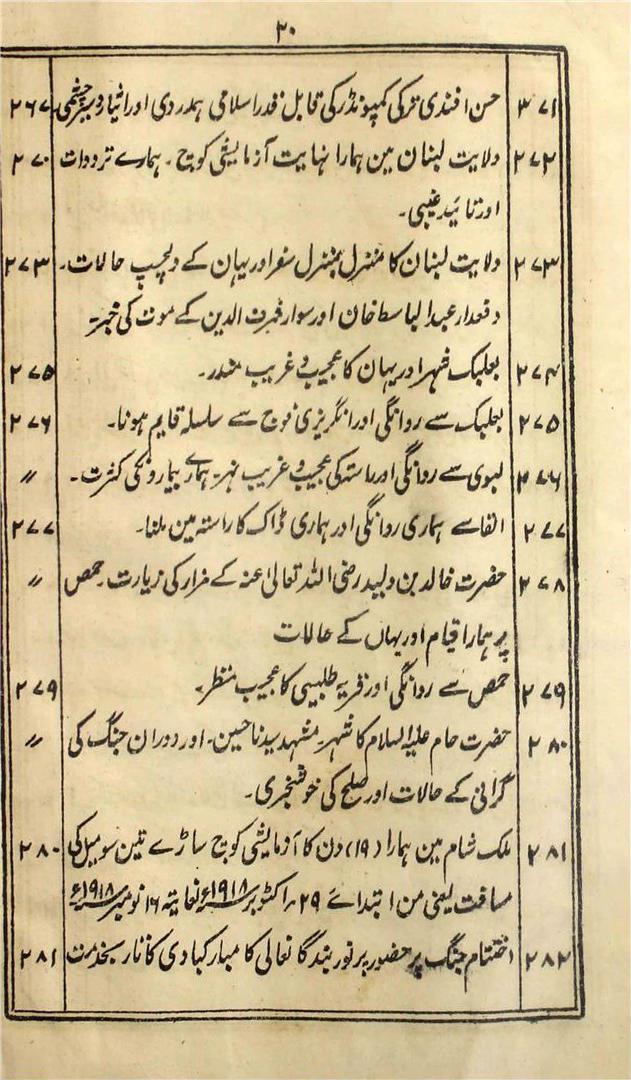 ۲۰
۲۷۱ حسن افندی ترکی کمپونڈر کی قابل قدر اسلامی ہمدردی اور ایثار و سیر چشمی ۲۶۷
۲۷۲ ولایت لبنان مین ہمارا نہایت آزمایشی کوچ ۔ ہمارے ترددات ۲۷۰
اور تائید غیبی۔
۲۷۳ ولایت لبنان کا منزل بمنزل سفر اور یہان کے دلچسپ حالات۔ ۲۷۳
دفعدار عبدالباسط خان اور سوار شرف الدین کے موت کی خبر۔
۲۷۴ بعلبک شہر اور یہان کا عجیب و غریب مندر۔ ۲۷۵
۲۷۵ بعلبک سے روانگی اور انگریزی فوج سے سلسلہ قایم ہونا۔ ۲۷۶
۲۷۶ لبوی سے روانگی اور راستہ کی عجیب و غریب نہر۔ ہمارے بیمارونکی کثرت۔ 〃
۲۷۷ القا سے ہماری روانگی اور ہماری ڈاک کا راستہ مین ملنا۔ ۲۷۷
۲۷۸ حضرت خالد بن ولید رضی اللہ تعالیٰ عنہ کے مزار کی زیارت۔ حمص 〃
پر ہمارا قیام اور یہاں کے حالات
۲۷۹ حمص سے روانگی اور قریہ طلبیسی کا عجیب منظر۔ ۲۷۹
۲۸۰ حضرت حام علیہ السلام کا شہر۔ مشہد سیدنا حسین۔ اور دوران جنگ کی 〃
گرانی کے حالات اور صلح کی خوشخبری۔
۲۸۱ ملک شام مین ہمارا (۱۹) دن کا آزمایشی کوچ ساڑے تین سو میل کی ۲۸۰
مسافت یعنی من ابتداے ۲۹؍ اکٹوبر سنہ ۱۹۱۸ء لغایتہ ۱۶ نومبر سنہ ۱۹۱۸ء
۲۸۲ اختتام جنگ پر حضور پر نور بندگانعالی کا مبارکبادی کا تار بخدمت ۲۸۱